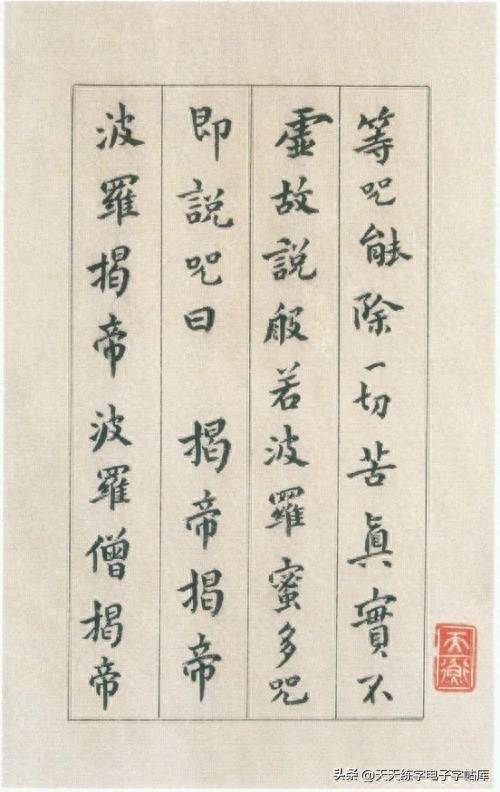 等呪能除一切苦真實不
虛故說般若波羅蜜多呪
即說呪曰　揭帝揭帝
波羅揭帝波羅僧揭帝
天衡
头条 @天天练字电子字帖库